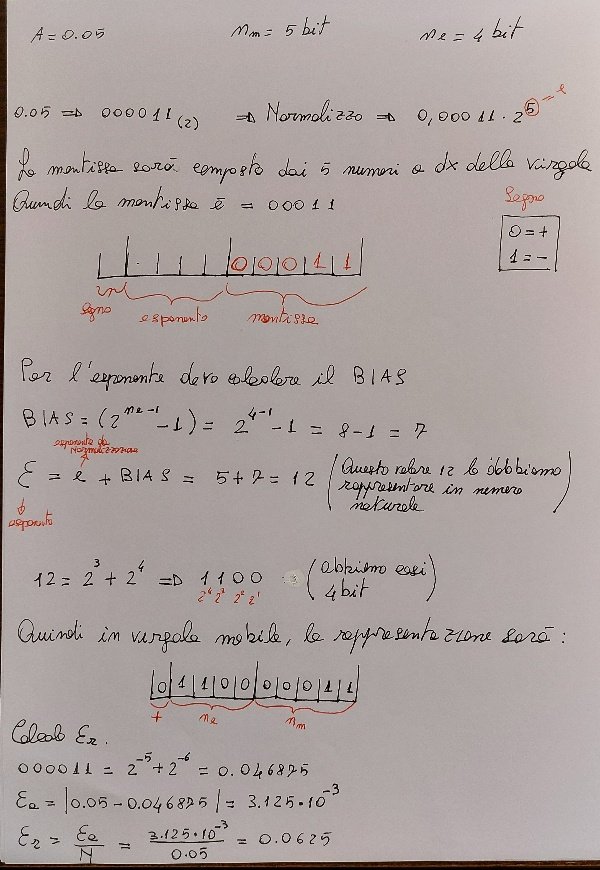 A = 0.05 nm = 5 bit ne = 4 bit
0.05 ⇒ 000011 (2) ⇒ Normalizzo ⇒ 0,00011 · 2^5 = e
La mantissa sarà composta dai 5 numeri a dx della virgola
Quindi la mantissa è = 00011
Segno
0 = +
1 = -
0 0 0 1 1
segno esponente mantissa
Per l'esponente devo calcolare il BIAS
BIAS = (2^ne-1 - 1) = 2^4-1 - 1 = 8 - 1 = 7
esponente da
Normalizzazione
ℰ = e + BIAS = 5 + 7 = 12 (Questo valore 12 lo dobbiamo
rappresentare in numero
naturale)
esponente
12 = 2^3 + 2^4 ⇒ 1100 (abbiamo così
4 bit)
2^4 2^3 2^2 2^1
Quindi in virgola mobile, la rappresentazione sarà:
0 1 1 0 0 0 0 0 1 1
+ ne nm
Calcolo Er.
000011 = 2^-5 + 2^-6 = 0.046875
Ea = |0.05 - 0.046875| = 3.125·10^-3
Er = Ea/N = 3.125·10^-3/0.05 = 0.0625